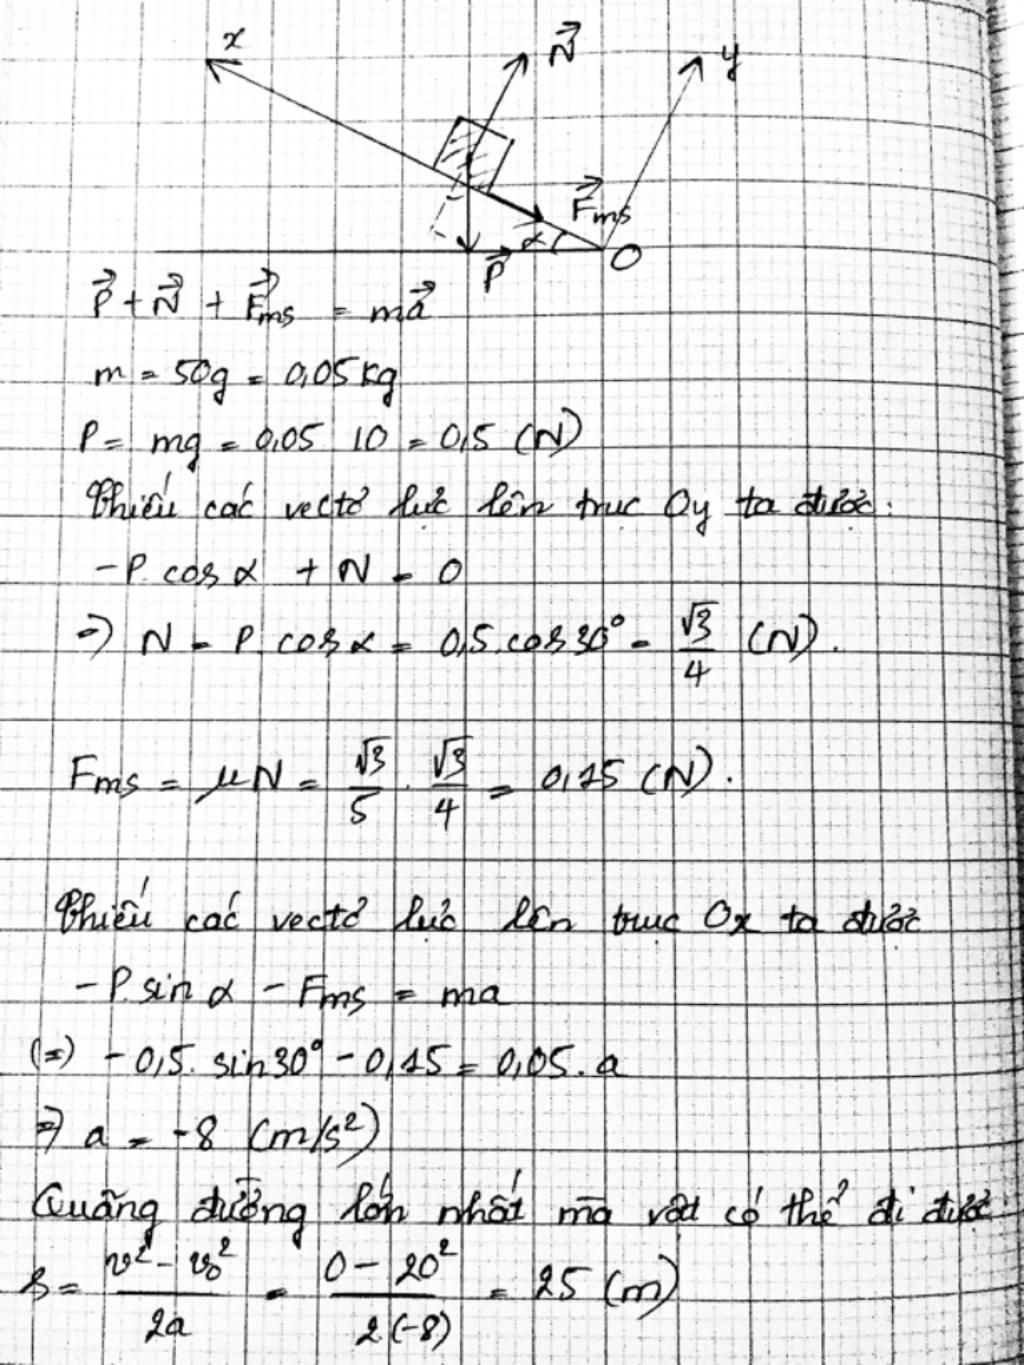 x
N⃗
y
F⃗ms
α
P⃗
O
P⃗ + N⃗ + F⃗ms = ma⃗
m = 50g = 0,05 kg
P = mg = 0,05 10 = 0,5 (N)
Chiếu các vectơ lực lên trục Oy ta được:
-P. cos α + N = 0
=> N = P. cos α = 0,5. cos 30° = √3/4 (N).
Fms = μN = √3/5 . √3/4 = 0,15 (N).
Chiếu các vectơ lực lên trục Ox ta được
-P. sin α - Fms = ma
(=) -0,5. sin 30° - 0,15 = 0,05. a
=> a = -8 (m/s²)
Quãng đường lớn nhất mà vật có thể đi được
s = (v² - v₀²)/2a = (0 - 20²)/2.(-8) = 25 (m)